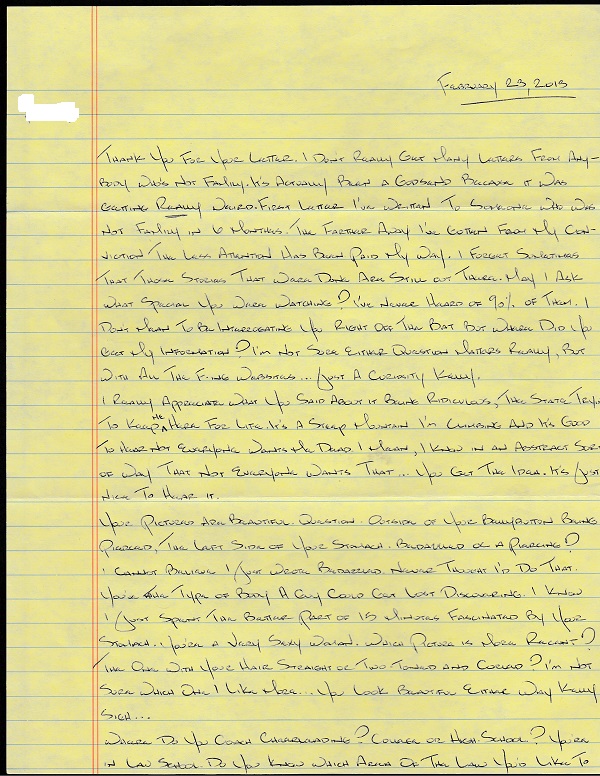 February 23, 2013
Thank You For Your Letter. I Don't Really Get Many Letters From Any-
body Who's Not Family. It's Actually Been A Godsend Because It Was
Getting Really Weird. First Letter I've Written To Someone Who Was
Not Family in 6 Months. The Farther Away I've Gotten From My Con-
viction The Less Attention Has Been Paid My Way. I Forget Sometimes
That Those Stories That Were Done Are Still Out There. May I Ask
What Special You Were Watching? I've Never Heard of 90% of Them. I
Don't Mean To Be Interrogating You Right Off The Bat But Where Did You
Get My Information? I'm Not Sure Either Question Matters Really, But
With All The F-ing Websites... Just A Curiosity Kelly.
I Really Appreciate What You Said About it Being Ridiculous, The State Tryin
To Keep Me Here For Life. It's A Steep Mountain I'm Climbing And It's Good
To Hear Not Everyone Wants Me Dead. I Mean, I Know in An Abstract Sort
of Way That Not Everyone Wants That... You Get The Idea. It's Just
Nice To Hear it.
Your Pictures Are Beautiful. Question. Outside of Your Bellybutton Being
Pierced, The Left Side of Your Stomach. Bedazzled or A Piercing?
I Cannot Believe I Just Wrote Bedazzled. Never Thought I'd Do That.
You're The Type of Body A Guy Could Get Lost Discovering. I Know
I Just Spent The Better Part of 15 Minutes Fascinated By Your
Stomach. You're A Very Sexy Woman. Which Picture is More Recent?
The One With Your Hair Straight or Two Toned and Curled? I'm Not
Sure Which One I Like More... You Look Beautiful Either Way Kelly
Sigh...
Where Do You Coach Cheerleading? College or High School? You're
in Law School. Do You Know Which Area Of The Law You'd Like To